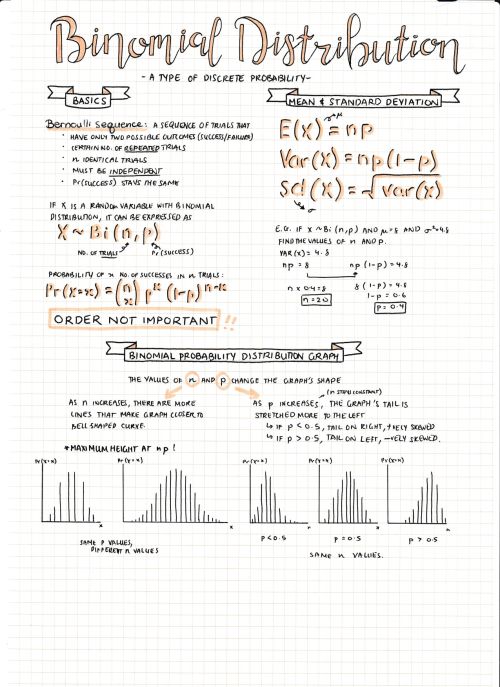 Binomial Distribution
- A TYPE OF DISCRETE PROBABILITY -
BASICS
Bernoulli Sequence: A SEQUENCE OF TRIALS THAT
· HAVE ONLY TWO POSSIBLE OUTCOMES (SUCCESS/FAILURE)
· CERTAIN NO. OF REPEATED TRIALS
· n IDENTICAL TRIALS
· MUST BE INDEPENDENT
· Pr(SUCCESS) STAYS THE SAME
IF X IS A RANDOM VARIABLE WITH BINOMIAL
DISTRIBUTION, IT CAN BE EXPRESSED AS
X ~ Bi(n, p)
NO. OF TRIALS
Pr (SUCCESS)
PROBABILITY OF x NO. OF SUCCESSES IN n TRIALS:
Pr(X=x) = (n x) p^x (1-p)^n-x
ORDER NOT IMPORTANT !!
MEAN & STANDARD DEVIATION
μ
E(X) = np
Var(X) = np(1-p)
Sd(X) = √Var(X)
σ
E.G. IF X ~ Bi(n,p) AND μ=8 AND σ²=4.8
FIND THE VALUES OF n AND p.
VAR(X) = 4.8
np = 8
np(1-p) = 4.8
n x 0.4 = 8
8(1-p) = 4.8
n = 20
1-p = 0.6
p = 0.4
BINOMIAL PROBABILITY DISTRIBUTION GRAPH
THE VALUES OF n AND p CHANGE THE GRAPH'S SHAPE
AS n INCREASES, THERE ARE MORE
LINES THAT MAKE GRAPH CLOSER TO
BELL SHAPED CURVE.
(n STAYS CONSTANT)
AS p INCREASES, THE GRAPH'S TAIL IS
STRETCHED MORE TO THE LEFT
↳ IF p < 0.5, TAIL ON RIGHT, +VELY SKEWED
↳ IF p > 0.5, TAIL ON LEFT, -VELY SKEWED.
*MAXIMUM HEIGHT AT np!
Pr(X=x)
Pr(X=x)
Pr(X=x)
Pr(X=x)
Pr(X=x)
x
x
x
x
x
SAME P VALUES,
DIFFERENT n VALUES
p < 0.5
p = 0.5
p > 0.5
SAME n VALUES.